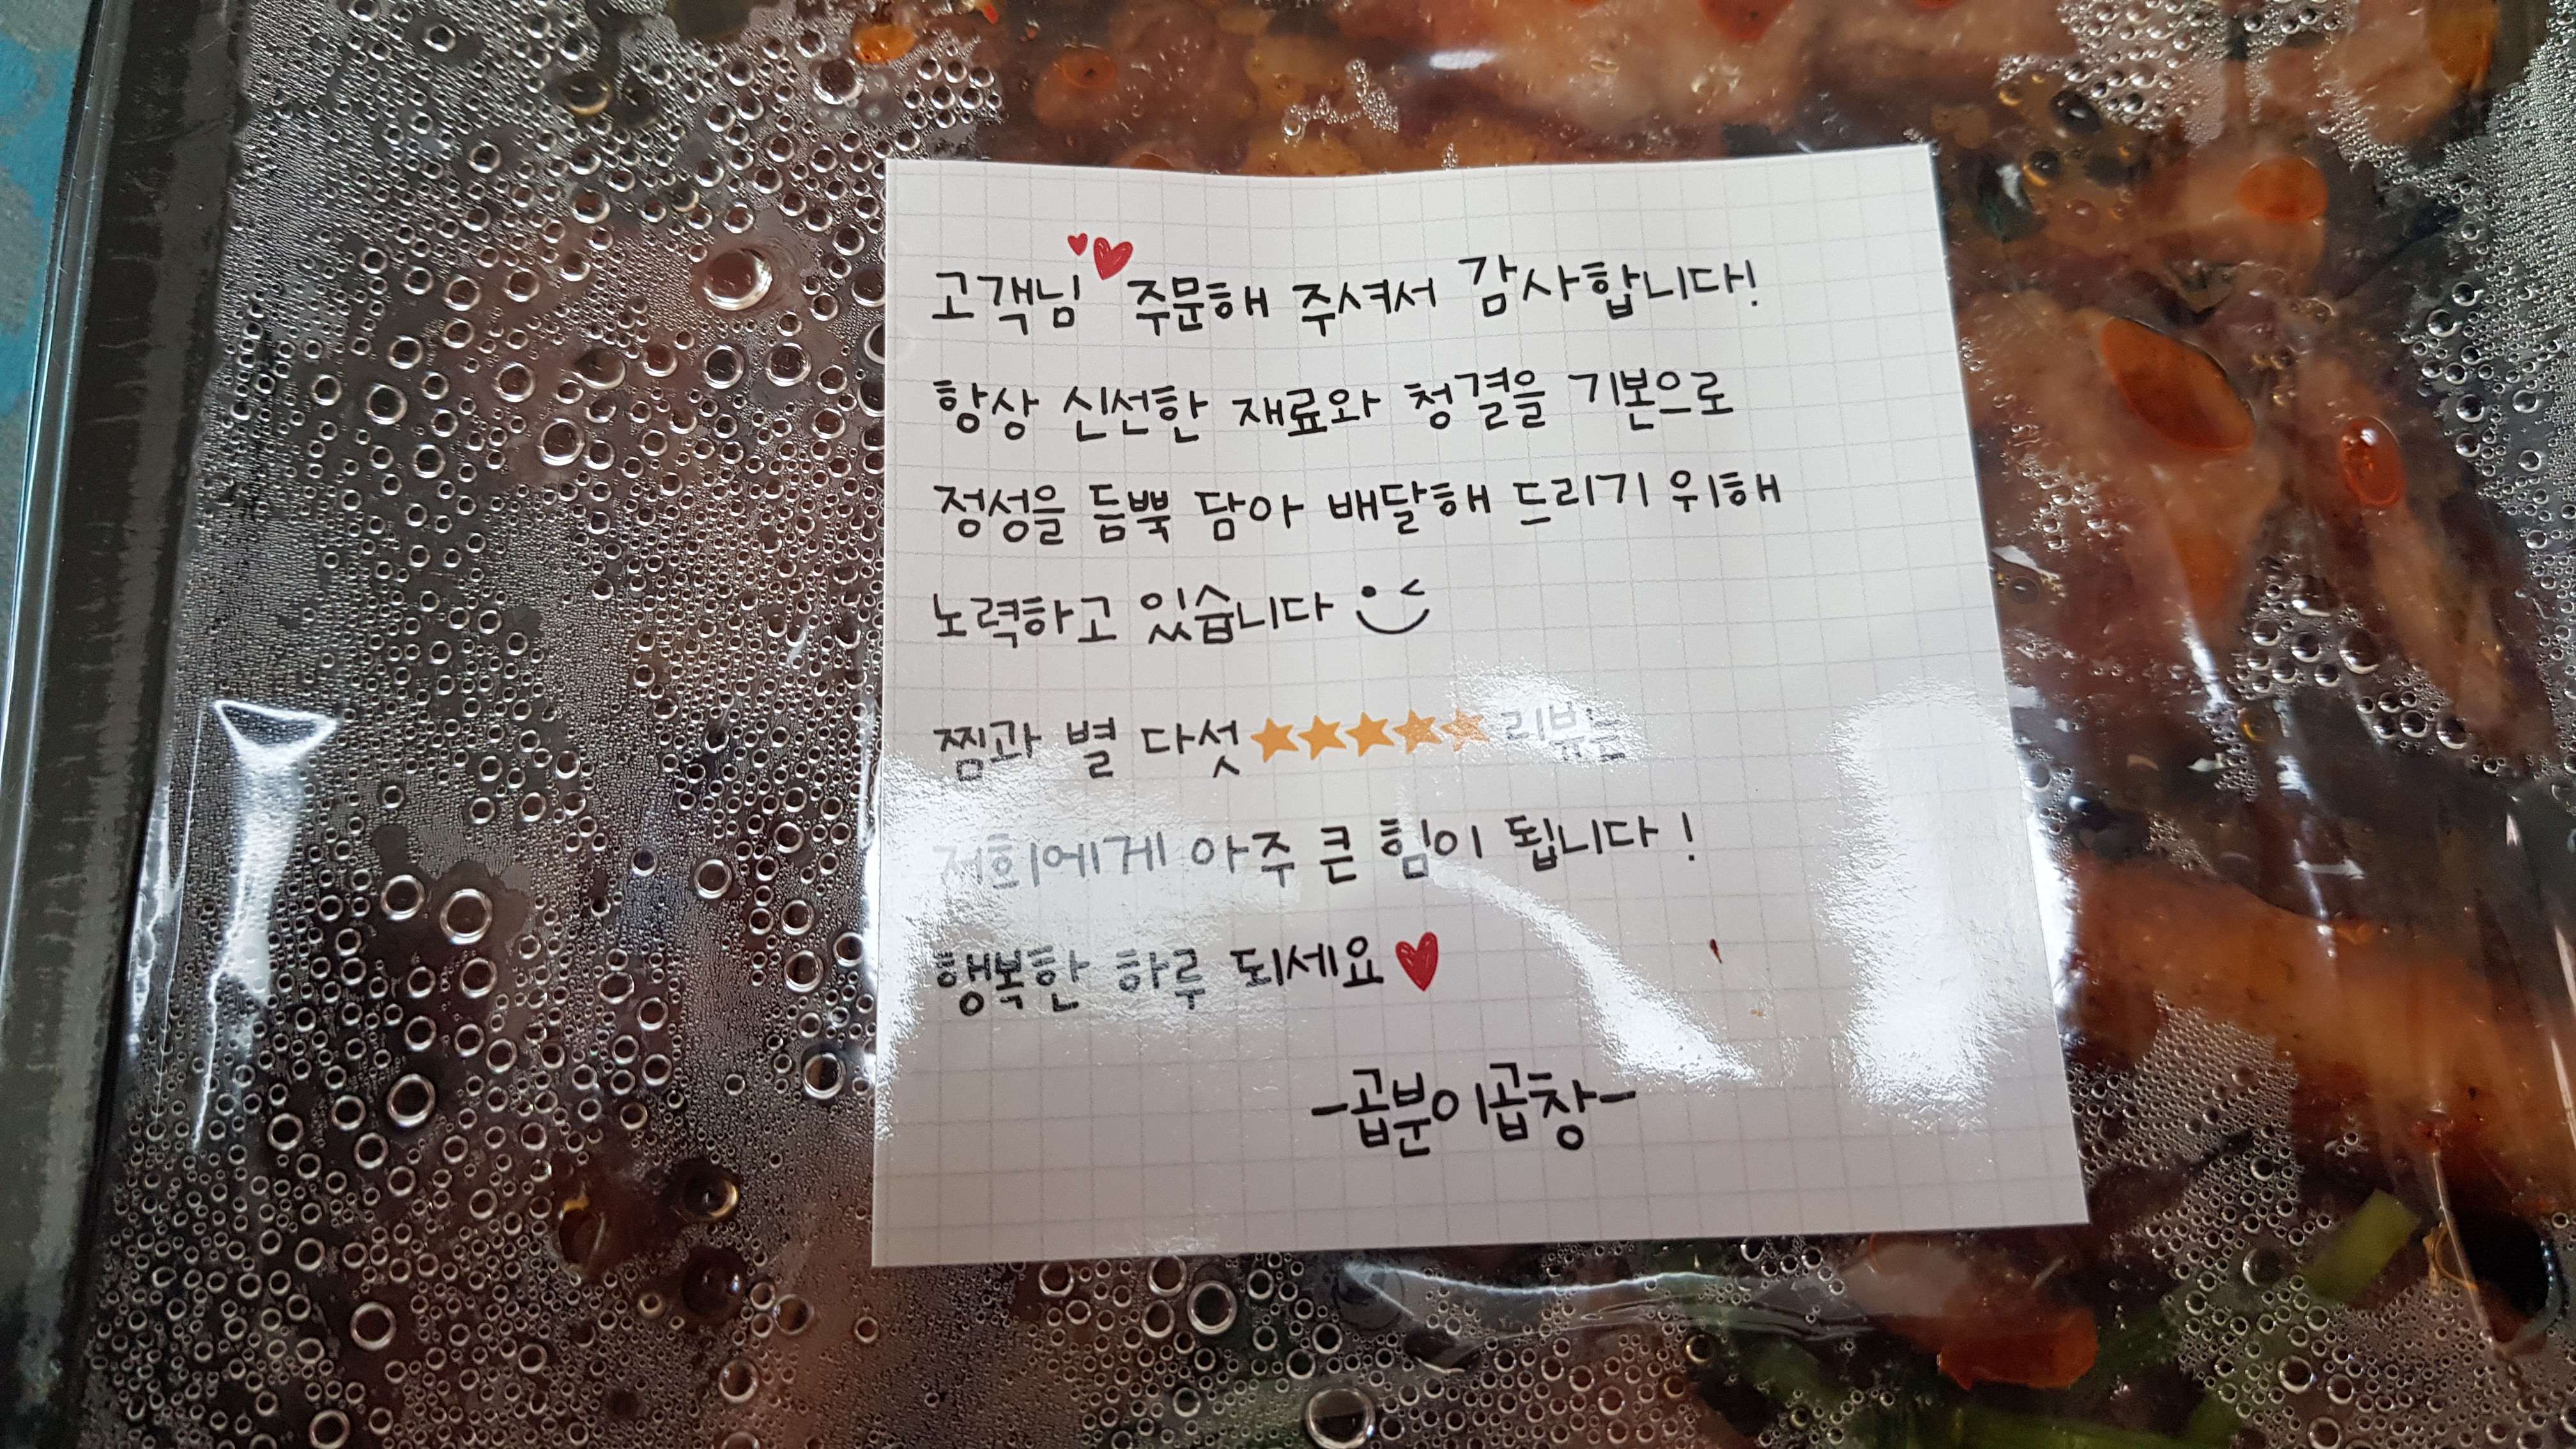 고객님 주문해 주셔서 감사합니다!
항상 신선한 재료와 청결을 기본으로
정성을 듬뿍 담아 배달해 드리기 위해
노력하고 있습니다
찜과 별 다섯 ★★★★★ 리뷰는
저희에게 아주 큰 힘이 됩니다!
행복한 하루 되세요
-곱분이곱창-